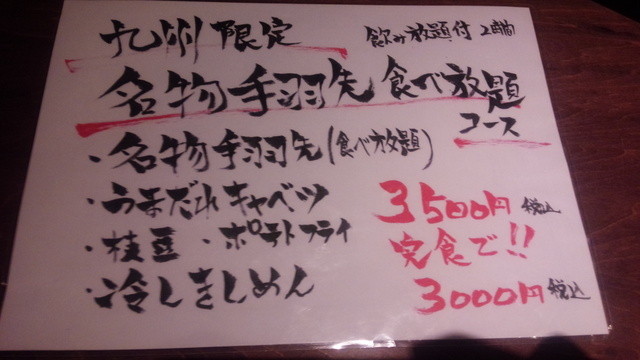 九州限定 飲み放題付 2時間
名物手羽先食べ放題
コース
・名物手羽先(食べ放題)
・うまだれキャベツ
・枝豆 ・ポテトフライ
・冷しきしめん
3500円 税込
完食で!!
3000円 税込